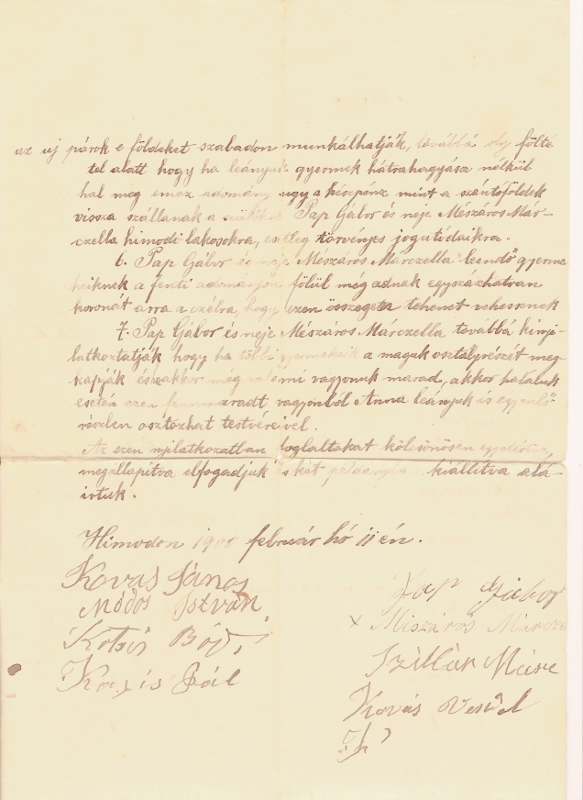 az uj párok e földeket szabadon munkálhatják, továbbá oly fölté
tel alatt hogy ha leányuk gyermek hátrahagyása nélkül
hal meg emez adomány ugy a készpénz mint a szántóföldek
vissza szállanak a Pap Gábor és neje Mészáros Már-
czella himodi lakosokra, esetleg törvényes jogutódaikra.
6. Pap Gábor és neje Mészáros Márczella leendő gyerme
keiknek a fenti adományon fölül meg adnak egyszázhatvan
koronát arra a czélra, hogy ezen összegért tehenet vehessenek
7. Pap Gábor és neje Mészáros Márczella továbbá kinyi-
latkoztatják hogy ha többi gyermekeik a maguk osztályrészét meg
kapják és akkor még valami vagyonuk marad, akkor haláluk
esetén ezen fennmaradt vagyonból Anna leányuk is egyenlő
részben osztozhat testvéreivel.
Az ezen nyilatkozatban foglaltakat kölcsönösen
megállapitva elfogadjuk és két példányba kiállitva alá-
irtuk.
Himodon 1900 február hó 11 én.
Kovas János
Módos István
Bódi
Pál
Pap Gábor
x Miszáros Márcze
Szillár
Kovás